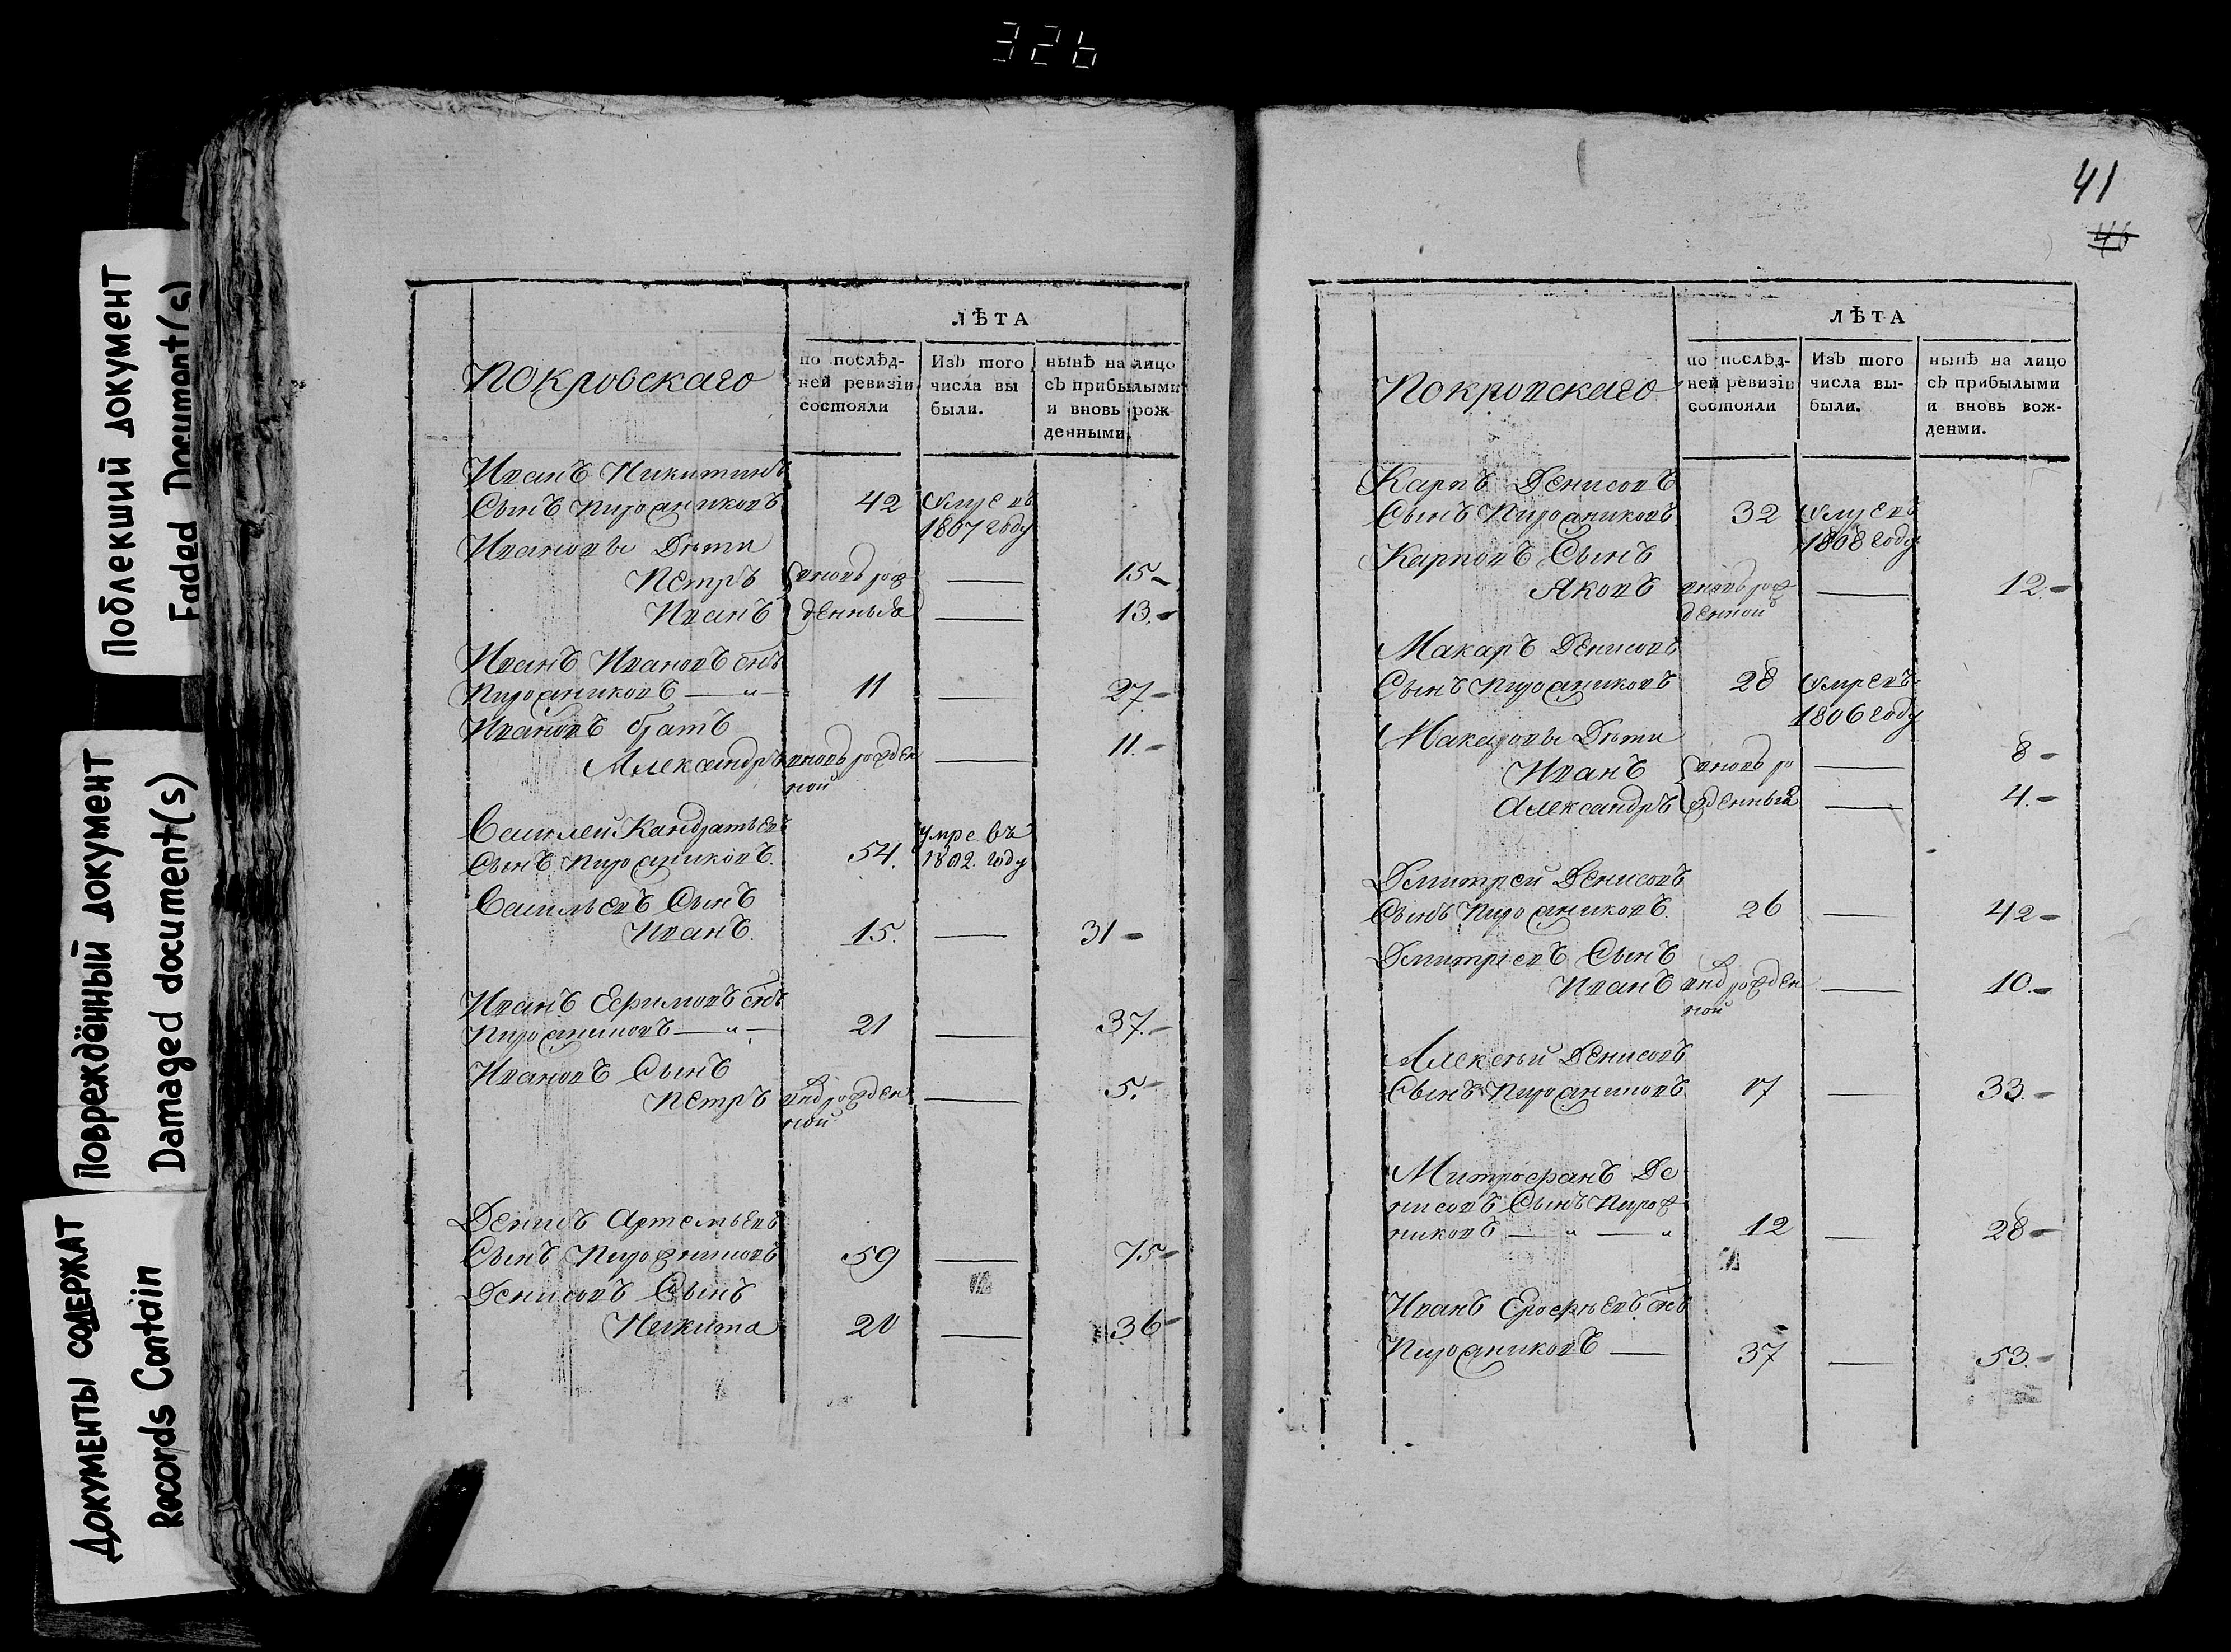 326
Поблекший документ
Faded Document(s)
Повреждённый документ
Damaged document(s)
Документы содержат
Records Contain
ЛѢТА
Покровскаго
по послѣд-
ней ревизіи
состояли
Изъ того
числа вы
были.
нынѣ на лицо
сь прибылыми
и вновь рож
денными.
Иванъ Никитинъ
Сынъ Пирожниковъ 42 Умревъ
1807 году
Ивановы Дѣти
Петръ вновь рож — 15
Иванъ денныя — 13.
Иванъ Ивановъ снъ
Пирожниковъ — " — 11 — 27
Ивановъ братъ
Александръ вновь рожден — 11.
ной
Василей Кандратьевъ
Сынъ Пирожниковъ. 54. Умре въ
1802 году
Васильевъ Сынъ
Иванъ. 15. — 31
Иванъ Ефимовъ снъ
Пирожниковъ — " — 21 — 37.
Ивановъ Сынъ
Петръ внв рожден — 5.
ной
Денисъ Артемьевъ
Сынъ Пирожниковъ 59 — 75
Денисовъ Сынъ
Никита 20 — 36
41
46
ЛѢТА
Покровскаго
по послѣд-
ней ревизіи
состояли
Изъ того
числа вы-
были.
нынѣ на лицо
сь прибылыми
и вновь вож-
денми.
Карпъ Денисовъ
Сынъ Пирожниковъ 32 Умревъ
1808 году
Карповъ Сынъ
Яковъ вновь рож — 12.
денной
Макаръ Денисовъ
Сынъ Пирожниковъ 28 Умревъ
1806 году
Макаровы Дѣти
Иванъ вновь ро — 8
Александръ жденныя — 4.
Дмитрей Денисовъ
Сынъ Пирожниковъ. 26 — 42
Дмитріевъ Сынъ
Иванъ внв рожден — 10.
ной
Алексѣй Денисовъ
Сынъ Пирожниковъ 17 — 33.
Митрофанъ Де
нисовъ Сынъ Пирож
никовъ — " — " 12 — 28
Иванъ Ерофѣевъ снъ
Пирожниковъ — 37 — 53.